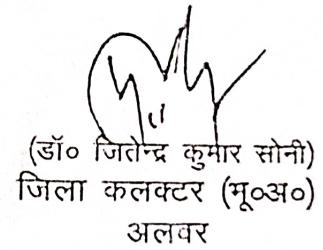 (डॉ० जितेन्द्र कुमार सोनी)
जिला कलक्टर (भू०अ०)
अलवर